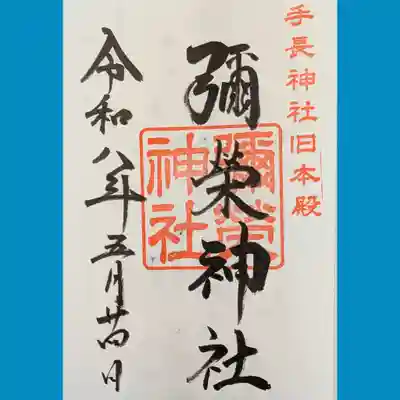 手長神社旧本殿
彌榮神社
彌榮神社
令和八年五月廿四日